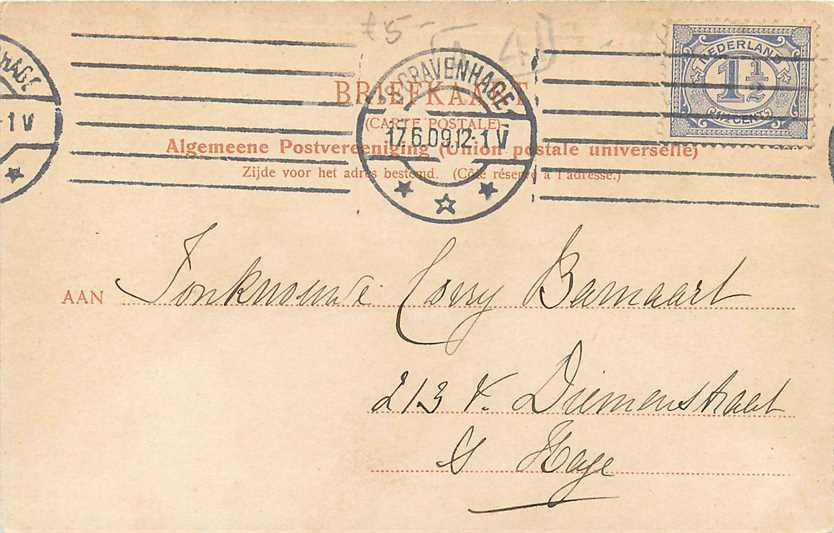 £5-
NEDERLAND
1 1/2
1½ CENT
'S-GRAVENHAGE
17.6.09.12-1V
-1V
BRIEFKAART
(CARTE POSTALE)
Algemeene Postvereeniging (Union postale universelle)
Zijde voor het adres bestemd. (Côté réservé à l'adresse.)
AAN Jonkvrouwe Corry Barnaart
213 v. Diemenstraat
's Hage